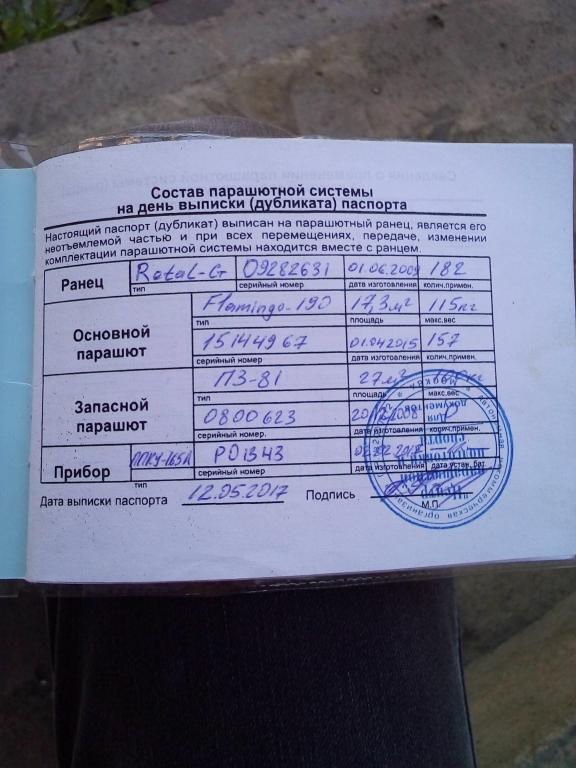 Состав парашютной системы
на день выписки (дубликата) паспорта
Настоящий паспорт (дубликат) выписан на парашютный ранец, является его
неотъемлемой частью и при всех перемещениях, передаче, изменении
комплектации парашютной системы находится вместе с ранцем.
Ранец Retal-G 09282631 01.06.2009 182
тип серийный номер дата изготовления колич.примен.
Основной парашют
Flamingo-190 17,3м² 115кг
тип площадь макс.вес
15144967 01.04.2015 157
серийный номер дата изготовления колич.примен.
Запасной парашют
ПЗ-81 27м²
тип площадь макс.вес
0800623 2008 0
серийный номер дата изготовления колич.примен.
Прибор ППКУ-165А РО1343
тип серийный номер дата изготовления дата устан. бат.
Дата выписки паспорта 12.05.2017 Подпись
М.П.